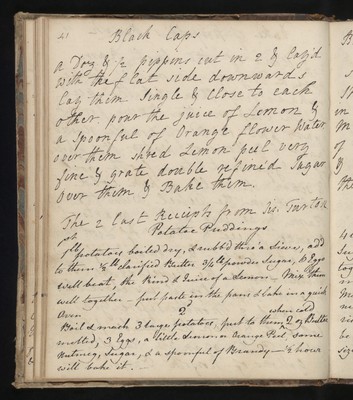 21
Black Caps
a Doz & ½ pippins cut in 2 & lay'd
with the flat side downwards
lay them Single & Close to each
other pour the juice of Lemon &
a Spoonful of Orange flower Water
over them Shred Lemon peel very
fine & grate double refined Sugar
over them & Bake them.
The 2 last Receipts from Mrs. Turton
Potatoe Puddings
potatoes boiled dry, & rubb'd thro' a Sieve, add
to them ½ lb clarified Butter ¾ lb powder Sugar, 6 Eggs
well beat, the Rind & Juice of a Lemon - Mix them
well together - put paste in the pans & bake in a quick
Oven
2
when cold
Boil & mash 3 large potatoes, put to them 2 oz Butter
melted, 3 Eggs, a little Lemon or Orange Peel, some
Nutmeg, Sugar, & a spoonful of Brandy - ½ hour
will bake it. -